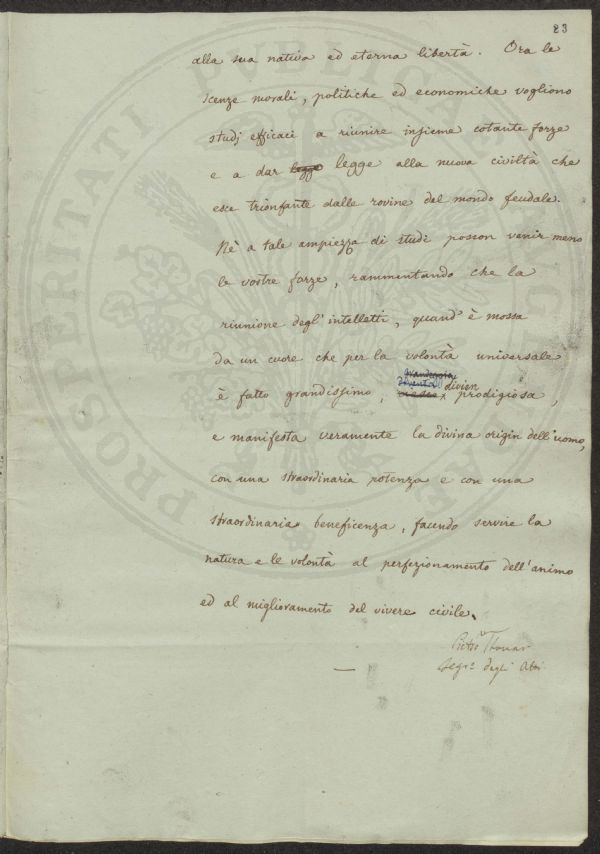 23
alla sua nativa ed eterna libertà. Ora le
scenze morali, politiche ed economiche vogliono
studj efficaci a riunire insieme cotante forze
e a dar legge legge alla nuova civiltà che
esce trionfante dalle rovine del mondo feudale.
Nè a tale ampiezza di studi posson venir meno
le vostre forze, rammentando che la
riunione degl'intelletti, quand'è mossa
da un cuore che per la volontà universale
diventa divien
è fatto grandissimo, prodigiosa,
e manifesta veramente la divina origin dell'uomo,
con una straordinaria potenza e con una
straordinaria beneficenza, facendo servire la
natura e le volontà al perfezionamento dell'animo
ed al miglioramento del vivere civile.
Pietro Thouar
Segr.º degli Atti
PROSPERITATI PUBLICAE